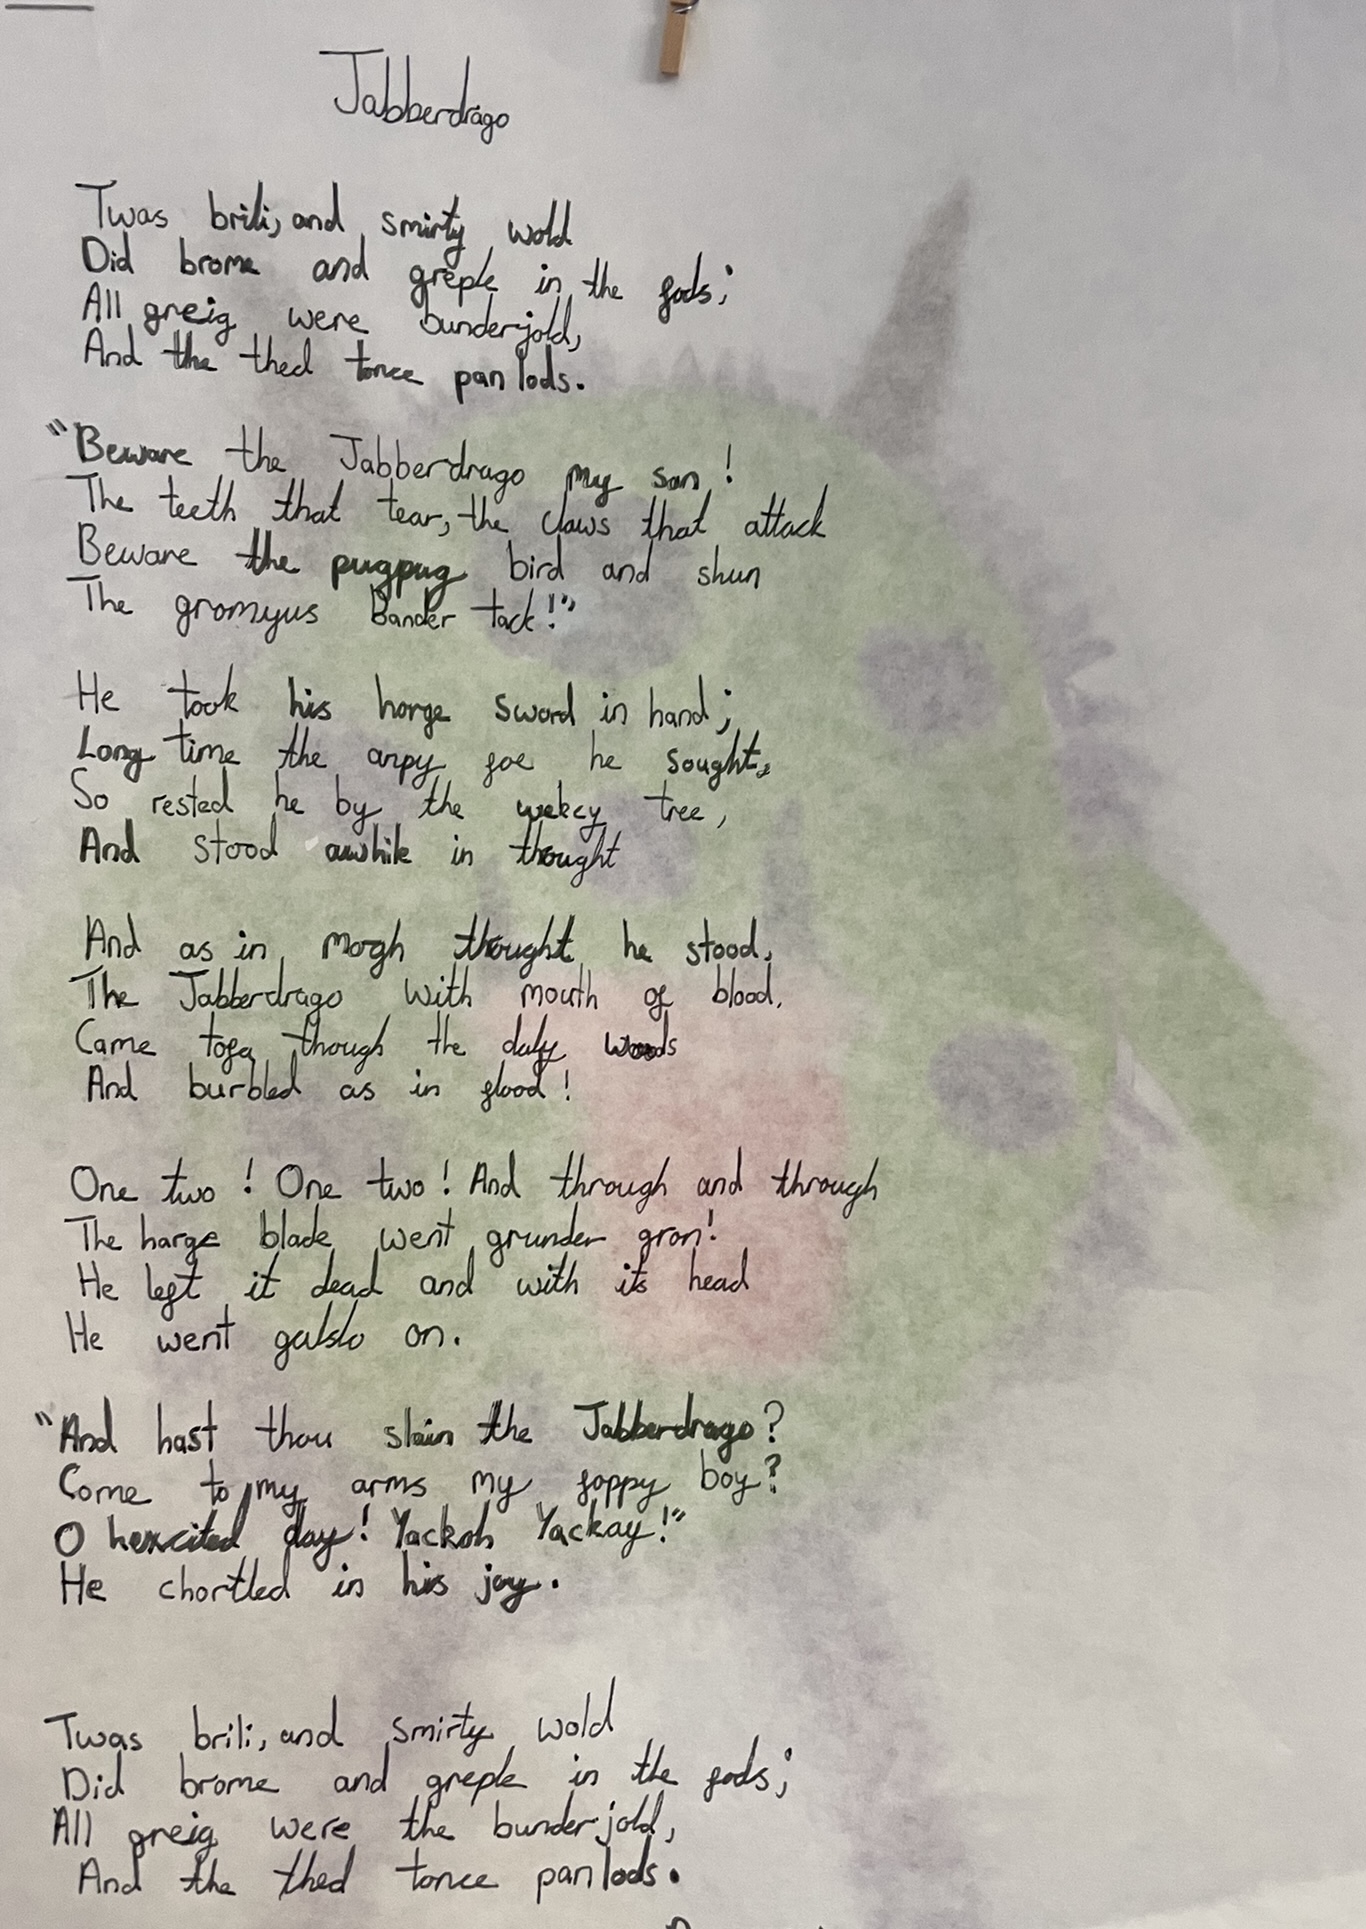 Jabberdrago
Twas brili, and smirty wold
Did brome and greple in the fods;
All greig were bunderjold,
And the thed tonce pan lods.
"Beware the Jabberdrago my son!
The teeth that tear, the claws that attack
Beware the pugpug bird and shun
The gromyus Bander tack!"
He took his horge sword in hand;
Long time the arpy foe he sought,
So rested he by the wekcy tree,
And stood awhile in thought
And as in mogh thought he stood,
The Jabberdrago with mouth of blood,
Came tofa though the daly woods
And burbled as in flood!
One two! One two! And through and through
The harge blade went grunder gron!
He left it dead and with its head
He went galslo on.
"And hast thou slain the Jabberdrago?
Come to my arms my foppy boy?
O hexcited day! Yackoh Yackay!"
He chortled in his joy.
Twas brili, and smirty wold
Did brome and greple in the fods;
All greig were the bunderjold,
And the thed tonce pan lods.